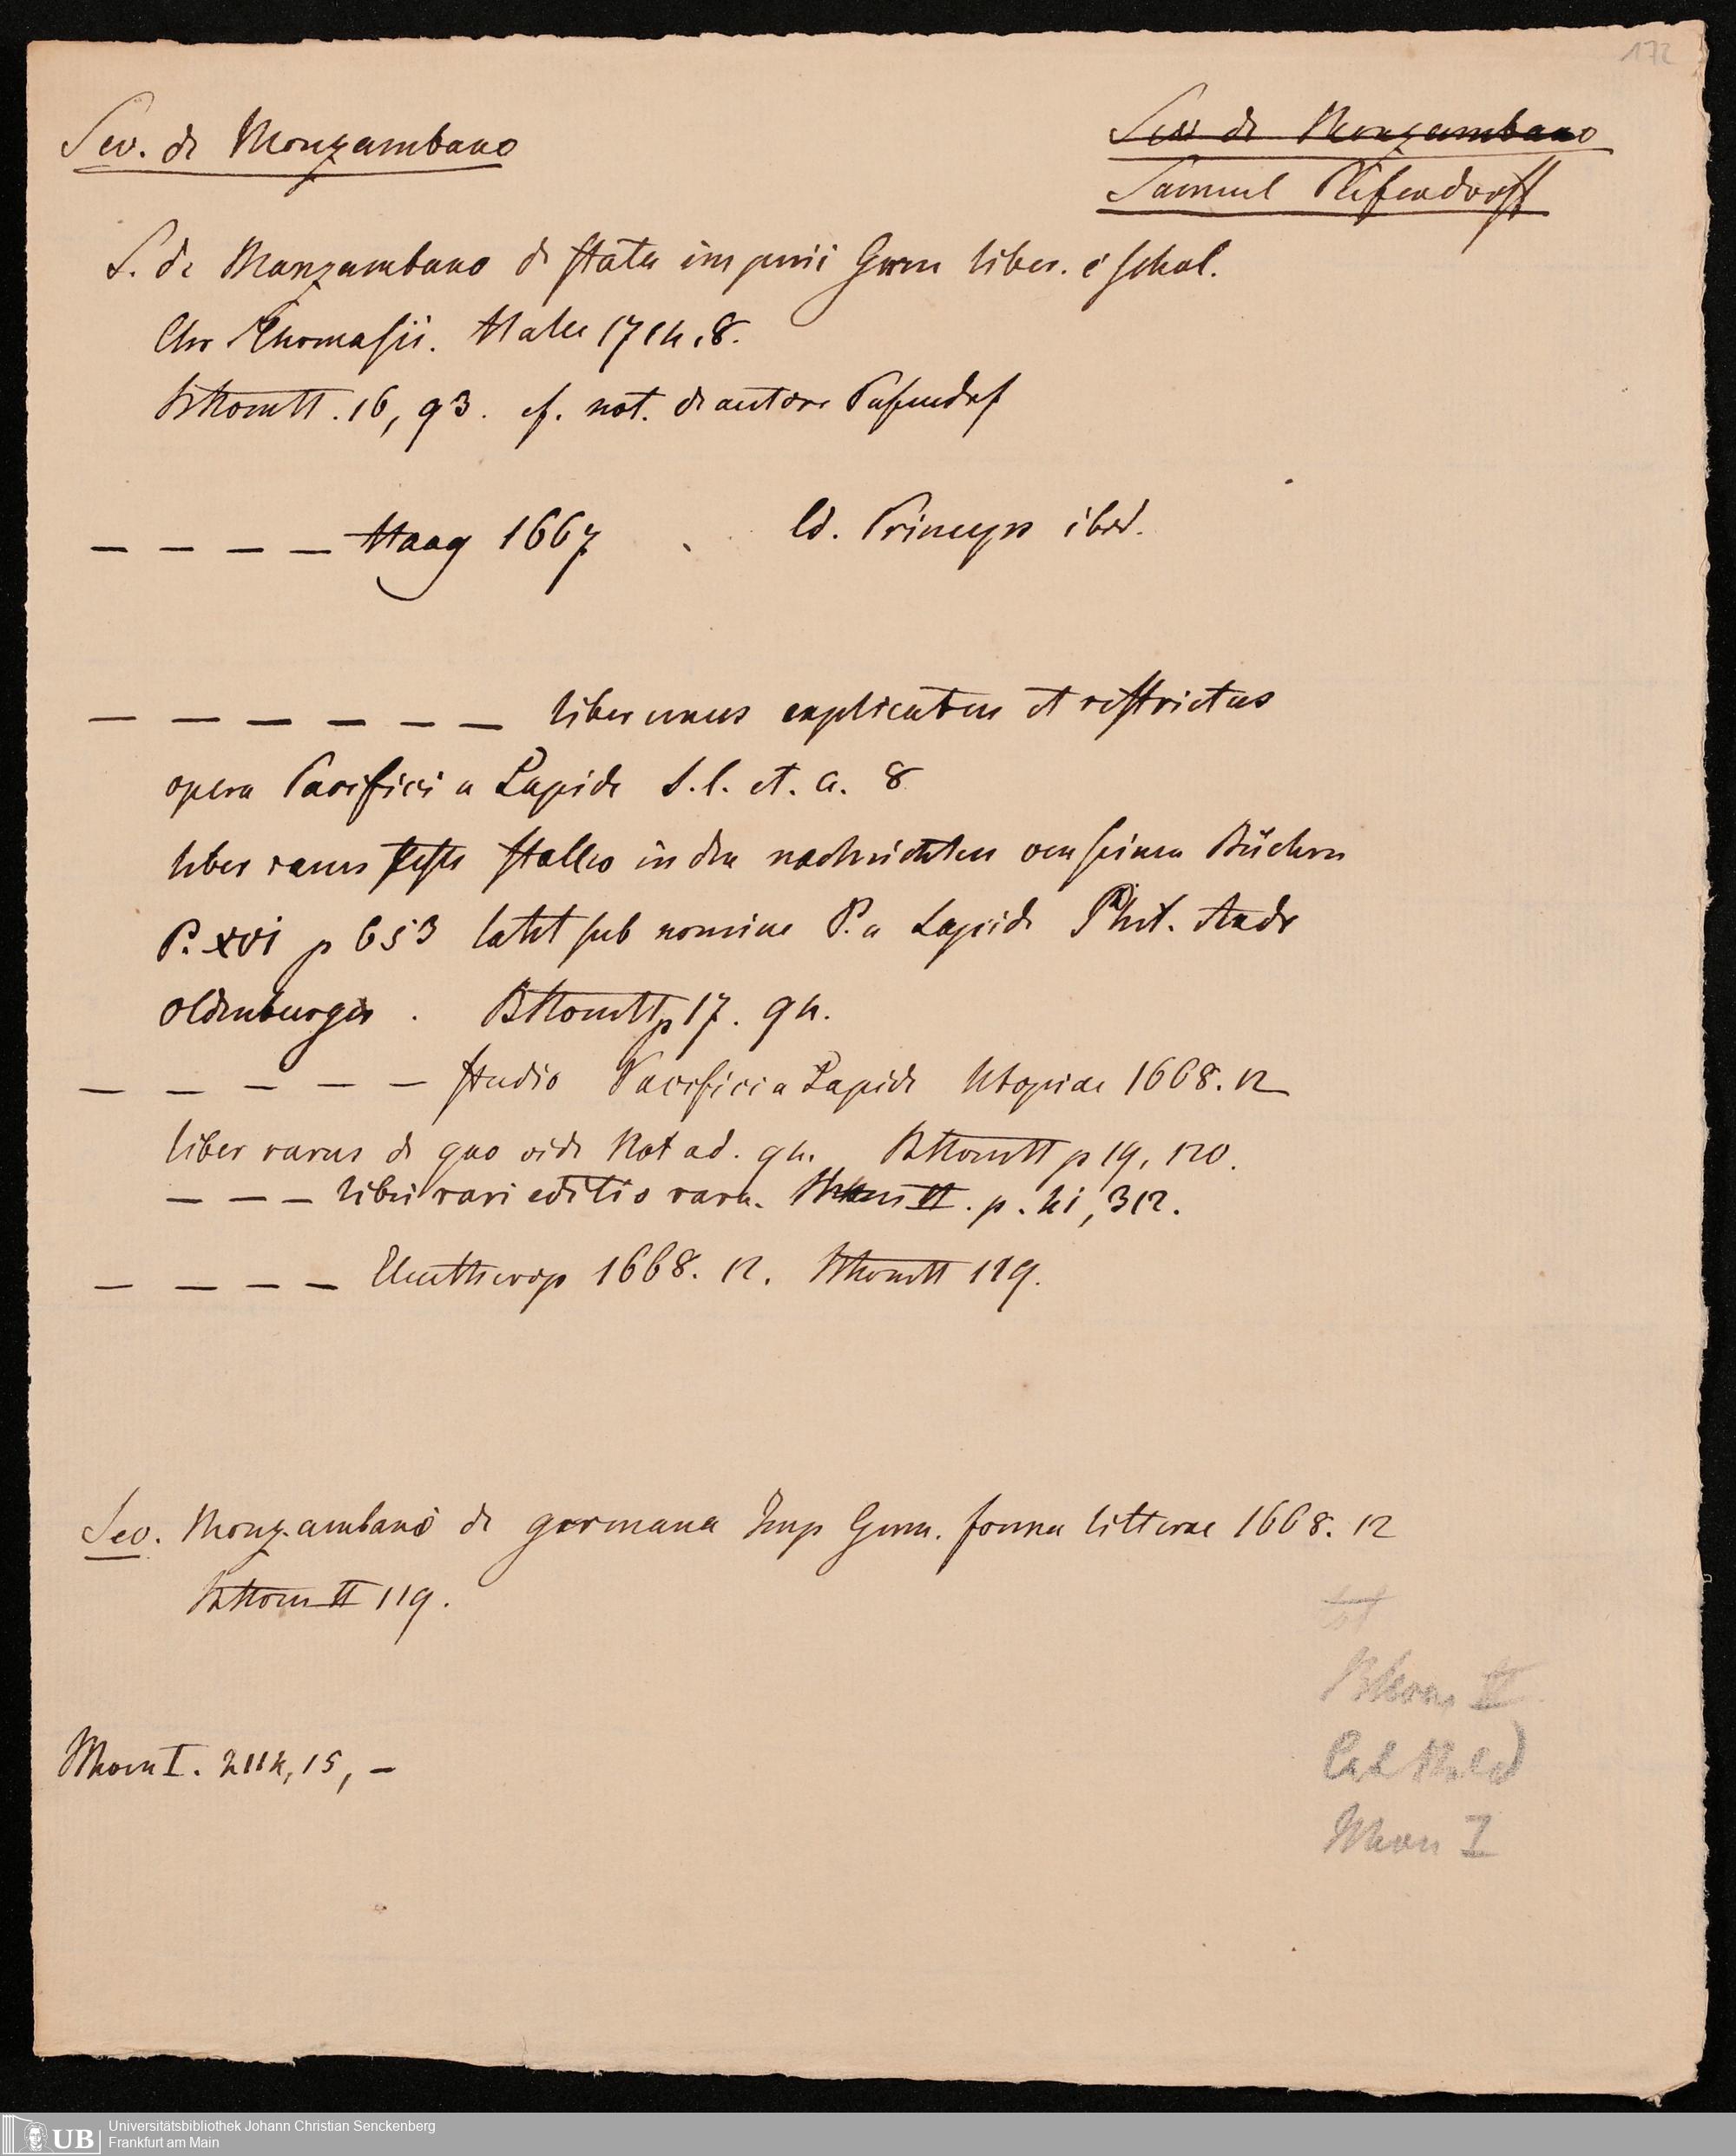 172
Sev. de Monzambano
Sev de Monzambano
Samuel Pufendorff
S. de Monzambano de statu imperii Germ liber. e schol.
Chr Thomasii. Halae 1714. 8.
BHomII. 16, 93. cf. not. de autore Pufendorf
— — — — Haag 1667
Ed. Princeps ibid.
— — — — — — liber unus explicatus et restrictus
opera Pacifici a Lapide S. l. et. a. 8
liber rarus teste in den nachrichten von seinen Büchern
P. XVI p 653 latet sub nomine P. a Lapide Phil. Andr
Oldenburger. BHomII p 17. 94.
— — — — — studio Pacifici a Lapide Utopiae 1668. 12
liber rarus de quo vide Not ad. 94. BHomII p 19, 120.
— — — libri rari editio rara. II. p. 41, 312.
— — — — Eleutherop 1668. 12. BHomII 119.
Sev. Monzambano de germana Imp Germ. forma litterae 1668. 12
BHom II 119.
BHom I. 2114, 15, —
tot
BHom II
Cat
BHom I
UB
Universitätsbibliothek Johann Christian Senckenberg
Frankfurt am Main